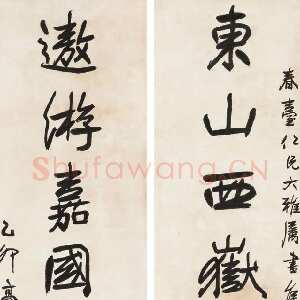 春臺仁兄大雅屬書
東山西嶽
遨游嘉國
乙卯
Shufawang.CN